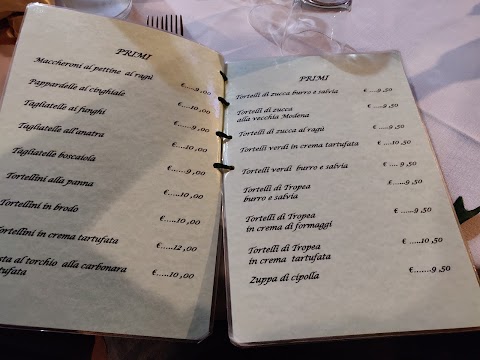 PRIMI
Maccheroni al pettine al ragù €...9,00
Pappardelle al cinghiale €....10,00
Tagliatelle ai funghi €....9,00
Tagliatelle all'anatra €....10,00
Tagliatelle boscaiola €.....9,00
Tortellini alla panna €.....10,00
Tortellini in brodo €.....10,00
Tortellini in crema tartufata €....12,00
sta al torchio alla carbonara
tufata €....10,00
PRIMI
Tortelli di zucca burro e salvia €....9,50
Tortelli di zucca
alla vecchia Modena €....9,50
Tortelli di zucca al ragù €....9,50
Tortelli verdi in crema tartufata €...10,50
Tortelli verdi burro e salvia €.... 9,50
Tortelli di Tropea
burro e salvia €.....9,50
Tortelli di Tropea
in crema di formaggi €....9,50
Tortelli di Tropea
in crema tartufata €...10,50
Zuppa di cipolla €......9,50